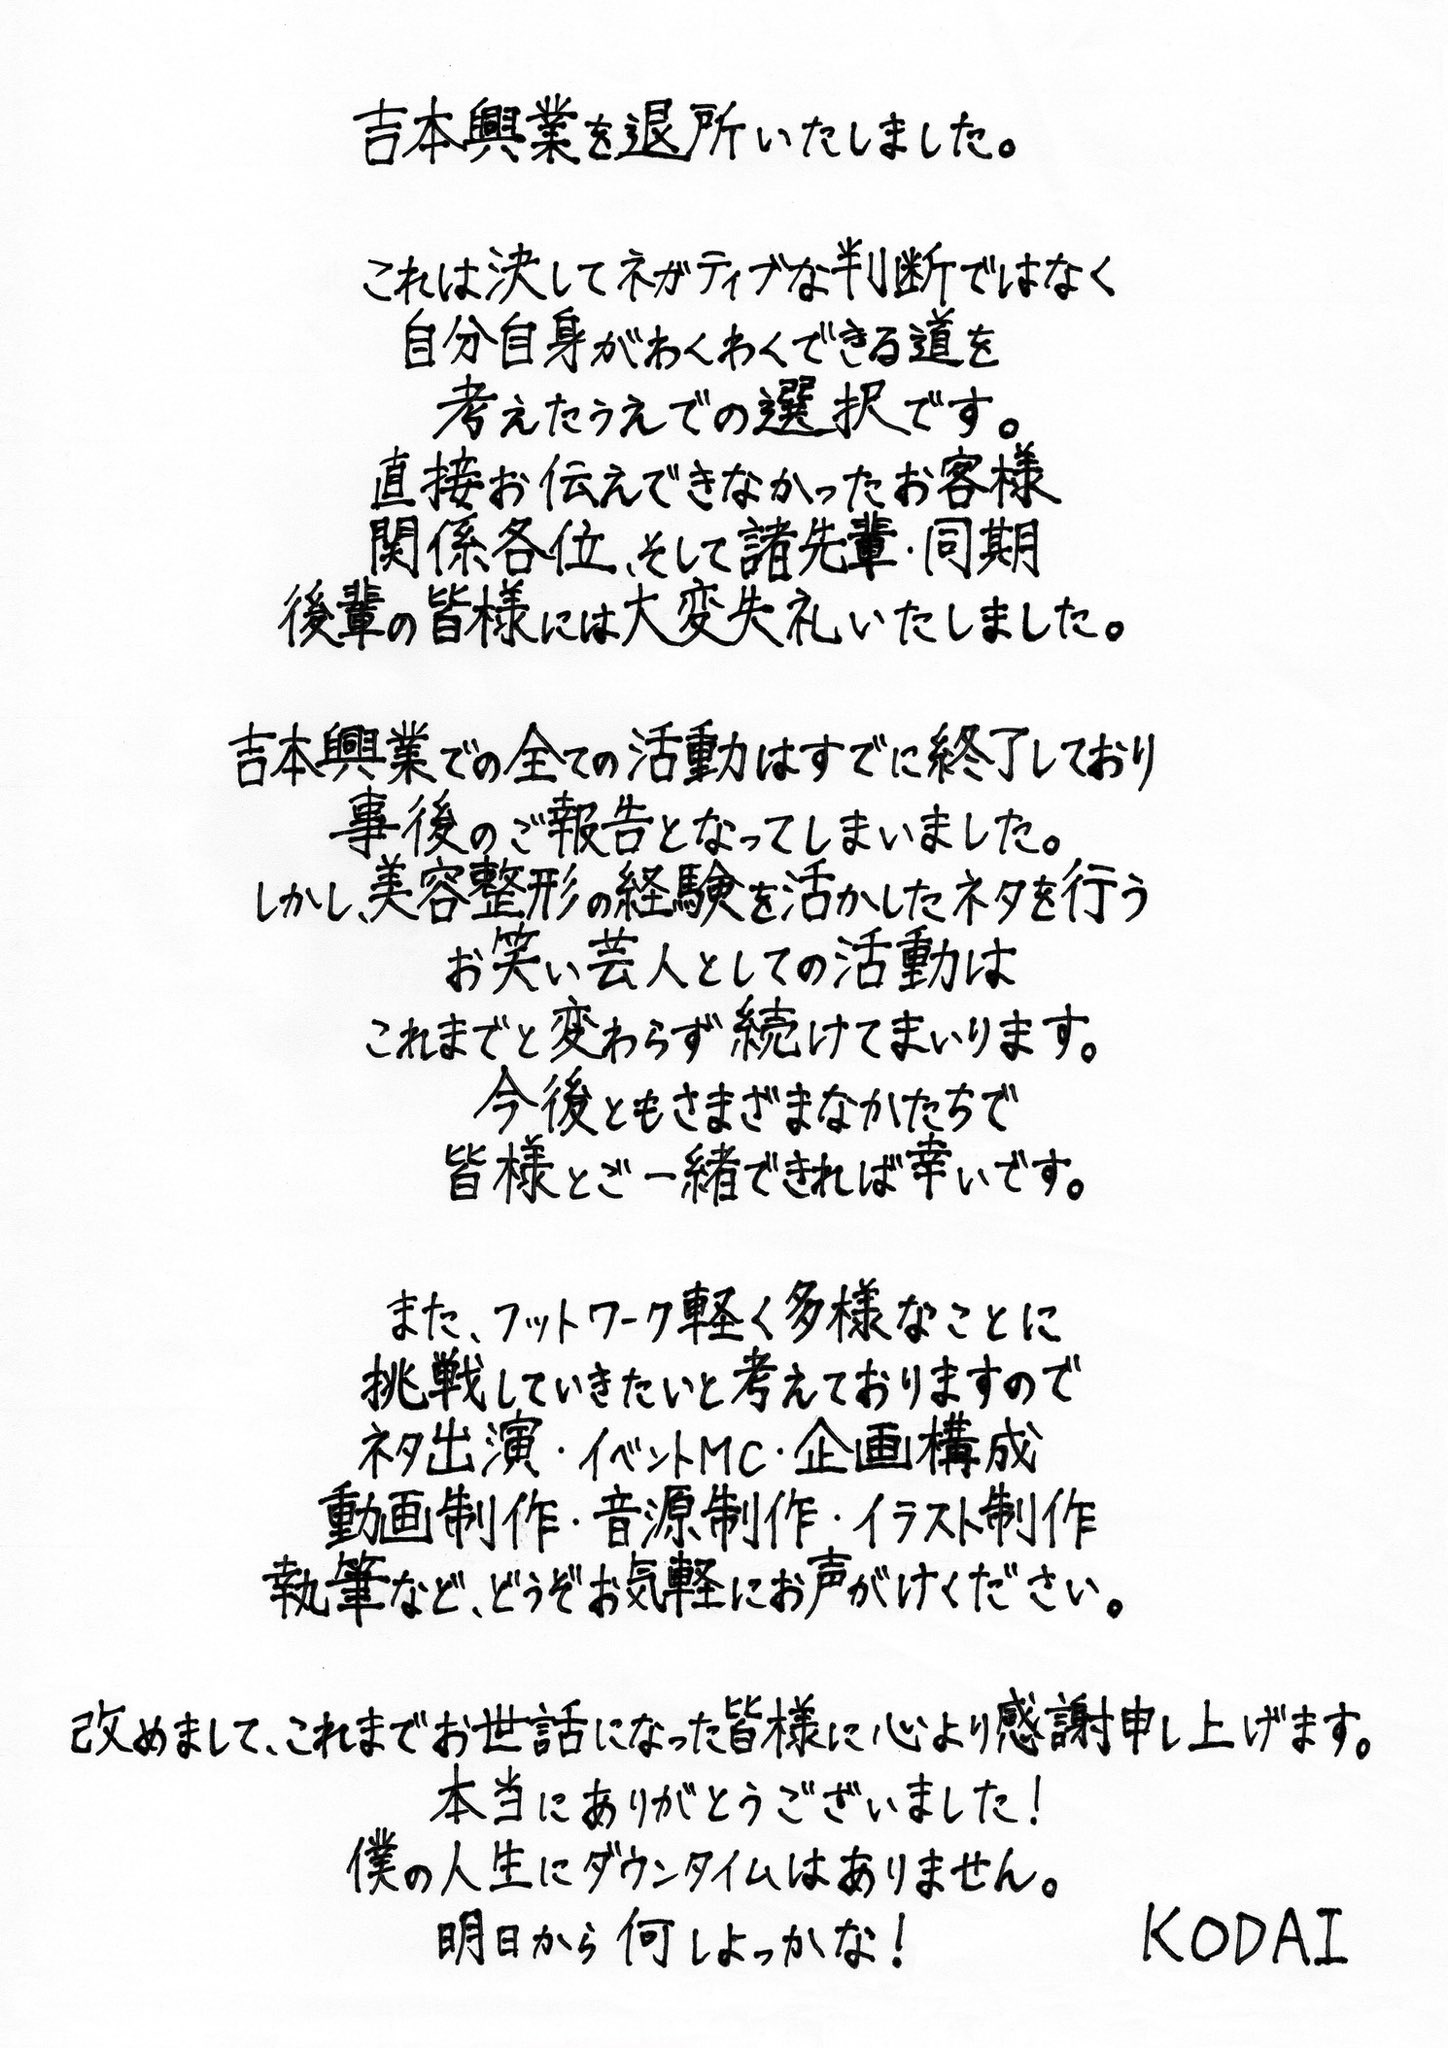 吉本興業を退所いたしました。
これは決してネガティブな判断ではなく
自分自身がわくわくできる道を
考えたうえでの選択です。
直接お伝えできなかったお客様
関係各位、そして諸先輩・同期
後輩の皆様には大変失礼いたしました。
吉本興業での全ての活動はすでに終了しており
事後のご報告となってしまいました。
しかし、美容整形の経験を活かしたネタを行う
お笑い芸人としての活動は
これまでと変わらず続けてまいります。
今後ともさまざまなかたちで
皆様とご一緒できれば幸いです。
また、フットワーク軽く多様なことに
挑戦していきたいと考えておりますので
ネタ出演・イベントMC・企画構成
動画制作・音源制作・イラスト制作
執筆など、どうぞお気軽にお声がけください。
改めまして、これまでお世話になった皆様に心より感謝申し上げます。
本当にありがとうございました!
僕の人生にダウンタイムはありません。
明日から何しよっかな!
KODAI